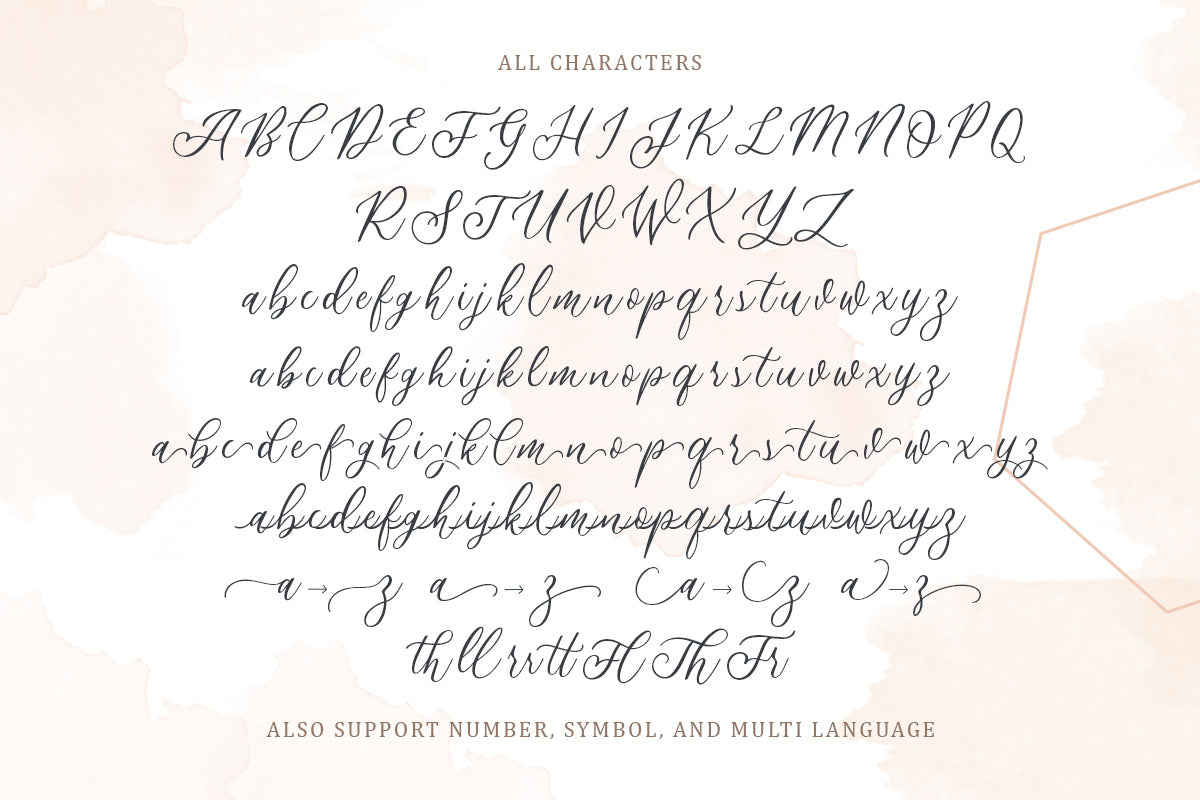 ALL CHARACTERS
A B C D E F G H I J K L M N O P Q
R S T U V W X Y Z
a b c d e f g h i j k l m n o p q r s t u v w x y z
a b c d e f g h i j k l m n o p q r s t u v w x y z
a b c d e f g h i j k l m n o p q r s t u v w x y z
a b c d e f g h i j k l m n o p q r s t u v w x y z
a → z a → z a → z a → z
th ll rr tt Fl Th Fr
ALSO SUPPORT NUMBER, SYMBOL, AND MULTI LANGUAGE